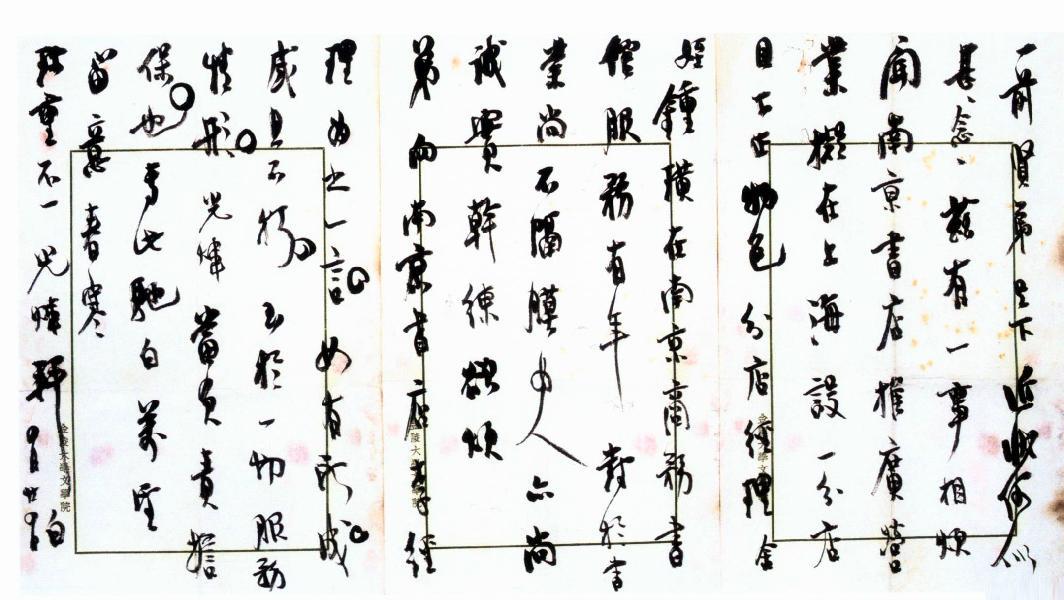 一前賢弟足下近
甚念念茲有一事相煩
聞南京書店推廣營
業擬在上海設一分店
目下正物色分店經理舍
姪鍾璜在南京商務書
館服務有年對於書
業尚不隔膜其人亦尚
誠實幹練欲煩
弟向南京書店李經
理為之一言如有所成
感且不朽至於一切服務
情形光煒當負責擔
保也專此馳白萬望
留意春寒
珍重不一 光煒拜白
金陵大學文學院
金陵大學文學院
金陵大學文學院